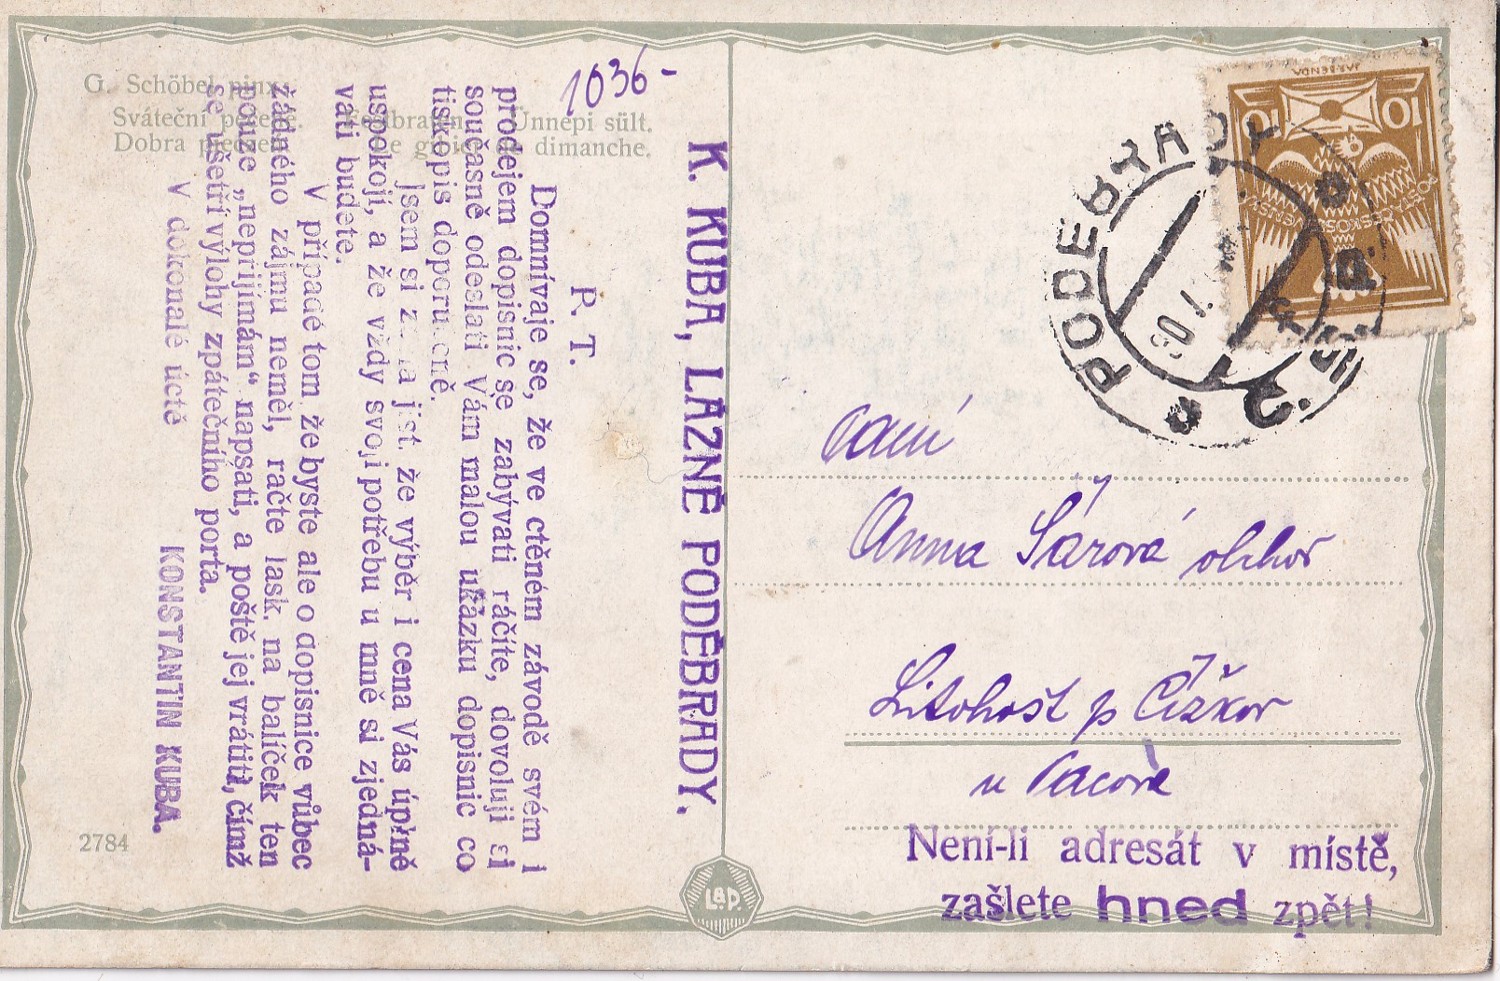 G. Schöbel pinx.
Sváteční pečeně. Festbraten. Ünnepi sült.
Dobra pieczeń. Le gibier de dimanche.
1036-
K. KUBA, LÁZNĚ PODĚBRADY.
P. T.
Domnívaje se, že ve ctěném závodě svém i
prodejem dopisnic se zabývati ráčíte, dovoluji si
současně odeslati Vám malou ukázku dopisnic co
tiskopis doporučeně.
Jsem si za jist. že výběr i cena Vás úplně
uspokojí, a že vždy svoji potřebu u mně si zjedná-
vati budete.
V případě tom že byste ale o dopisnice vůbec
žádného zájmu neměl, račte lask. na balíček ten
pouze „nepřijímám“ napsati, a poště jej vrátiti, čímž
se ušetří výlohy zpátečního porta.
V dokonalé úctě
KONSTANTIN KUBA.
2784
L&P.
JAR. BENDA
10 10
POŠTA ČESKOSLOVENSKÁ
PODĚBRADY
Paní
Anna Šárová obchod
Litohošť p Čížkov
u Pacova
Není-li adresát v místě,
zašlete hned zpět!